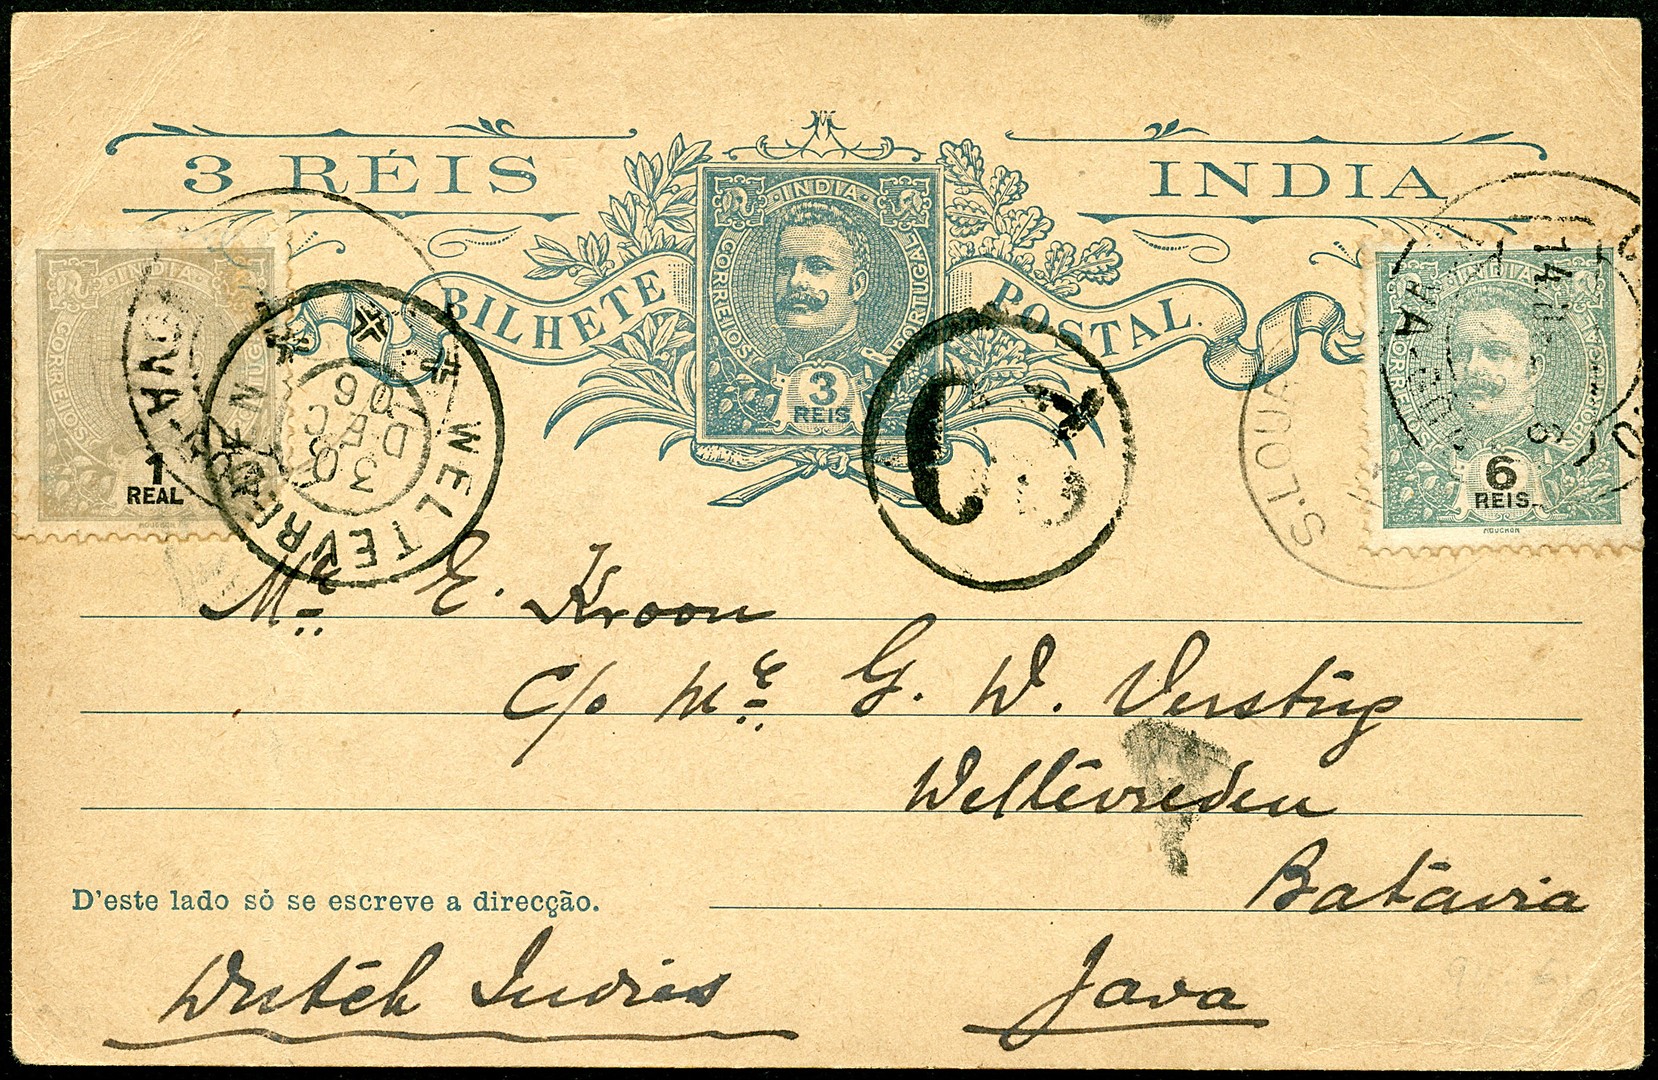 3 RÉIS
INDIA
INDIA
CORREIOS
PORTUGAL
3
REIS
BILHETE POSTAL
INDIA
CORREIOS
1
REAL
MOUCHON
INDIA
CORREIOS
PORTUGAL
6
REIS
MOUCHON
NOVA-GOA
WELTEVREDEN
30
DEC
06
NOVA-GOA
S. LOUR
Mr. E. Kroon
C/o Mr. G. W. Verstijp
Weltevreden
Batavia
D'este lado só se escreve a direcção.
Dutch Indies
Java